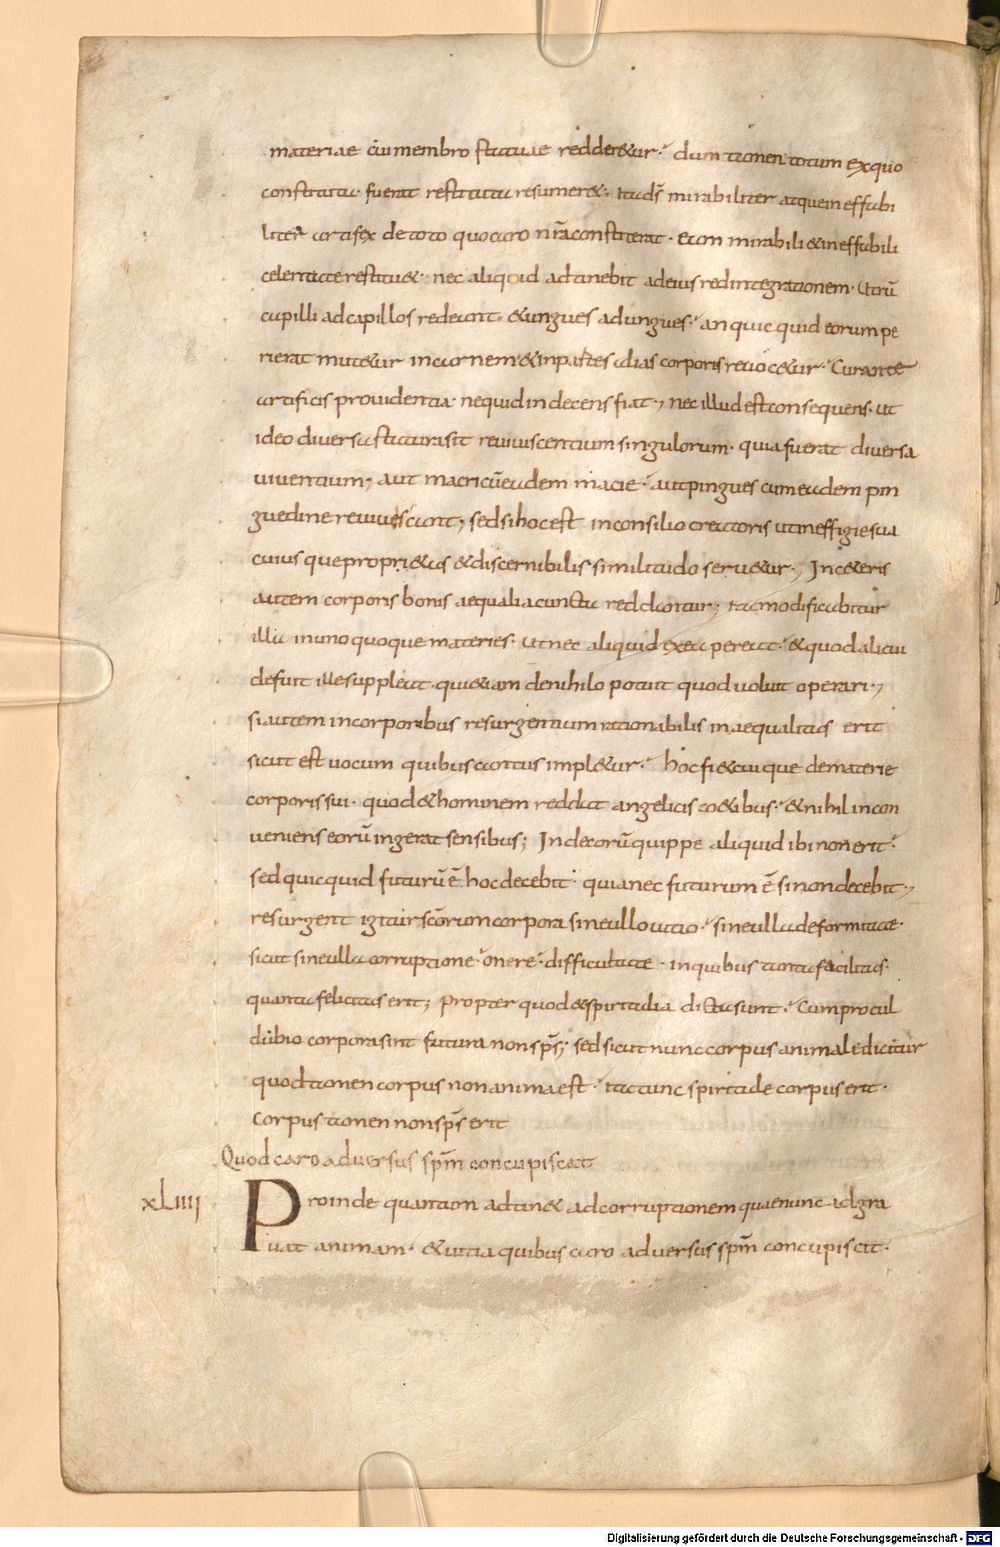 materiae cui membro statuae redderetur. dum tamen totum ex quo
constituta fuerat restituta resumeret. Ita dς mirabiliter atque ineffabi
liter artifex de toto quo caro nr̄a constiterat. eam mirabili & ineffabili
celeritate restituet. nec aliquid adtinebit ad eius redintegrationem. Utrū
capilli ad capillos redeant. & ungues ad ungues. an quicquid eorum pe
rierat mutetur in carnem & in partes alias corporis revocetur. Curante
artificis providentia. ne quid indecens fiat; nec illud est consequens. ut
ideo diversa statura sit reviviscentium singulorum. quia fuerat diversa
viventium; aut macri cū eadem macie. aut pingues cum eadem pin
guedine revivescant; sed si hoc est in consilio creatoris ut in effigie sua
cuiusque proprietas & discernibilis similitudo servetur; In ceteris
autem corporis bonis aequalia cuncta reddantur; ita modificabitur
illa in unoquoque materies. ut nec aliquid ex ea pereat. & quod alicui
defuit ille suppleat. qui etiam de nihilo potuit quod voluit operari;
si autem in corporibus resurgentium rationabilis inaequalitas erit
sicut est vocum quibus cantus impletur. hoc fiet cuique de materie
corporis sui. quod & hominem reddat angelicis coetibus. & nihil incon
veniens eorū ingerat sensibus; Indecorū quippe aliquid ibi non erit.
sed quicquid futurū ē hoc decebit. quia nec futurum ē si non decebit;
resurgent igitur sc̄orum corpora sine ullo vitio. sine ulla deformitate.
sicut sine ulla corruptione. onere. difficultate. in quibus tanta facilitas.
quanta felicitas erit; propter quod & spiritalia dicta sunt. Cum procul
dubio corpora sint futura non sp̄s; sed sicut nunc corpus animale dicitur
quod tamen corpus non anima est. ita tunc spiritale corpus erit.
corpus tamen non sp̄s erit
Quod caro adversus sp̄m concupiscat
xLIIII Proinde quantum adtinet ad corruptionem quae nunc adgra
vat animam. & vitia quibus caro adversus sp̄m concupiscit.
Digitalisierung gefördert durch die Deutsche Forschungsgemeinschaft - DFG